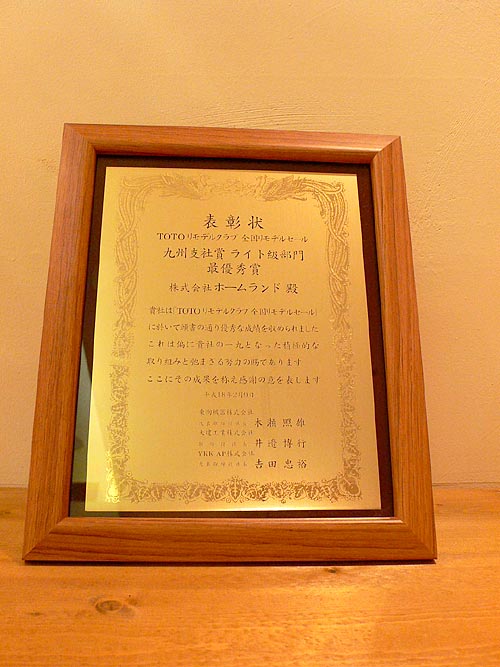 表彰状
TOTOリモデルクラブ 全国リモデルセール
九州支社賞 ライト級部門
最優秀賞
株式会社ホームランド 殿
貴社は「TOTOリモデルクラブ 全国リモデルセール」
に於いて頭書の通り優秀な成績を収められました
これは偏に貴社の一丸となった積極的な
取り組みと弛まざる努力の賜であります
ここにその成果を称え感謝の意を表します
平成18年2月9日
東陶機器株式会社
代表取締役社長 木瀬照雄
大建工業株式会社
取締役社長 井邉博行
YKK AP株式会社
代表取締役社長 吉田忠裕